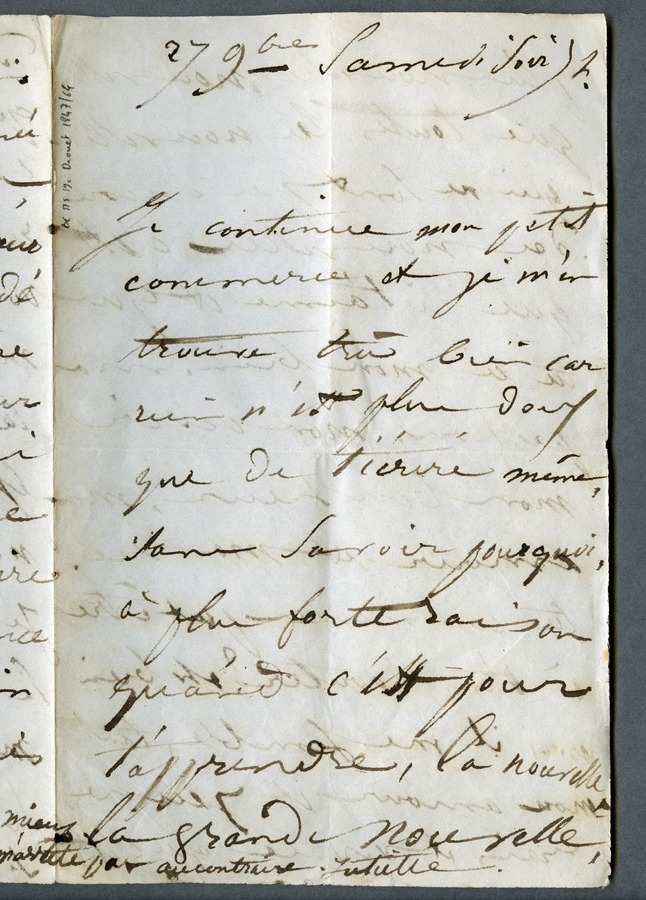 27 9bre Samedi Soir 5 h.
Je continue mon petit
commerce et je m'en
trouve très bien car
rien n'est plus doux
que de t'écrire même
sans savoir pourquoi,
à plus forte raison
quand c'est pour
t'apprendre, la nouvelle
la grande nouvelle,
mieux
m'arrête pas au contraire. Juliette.
BC MS 19c Drouet 1847/64